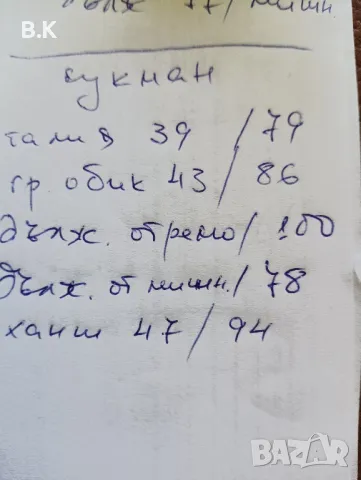 B.K
дълж 77/ мишн.
сукман
талия 39 / 79
гр. обик 43 / 86
дълж. от рамо / 100
дълж. от мишн. / 78
ханш 47 / 94
BAZAR